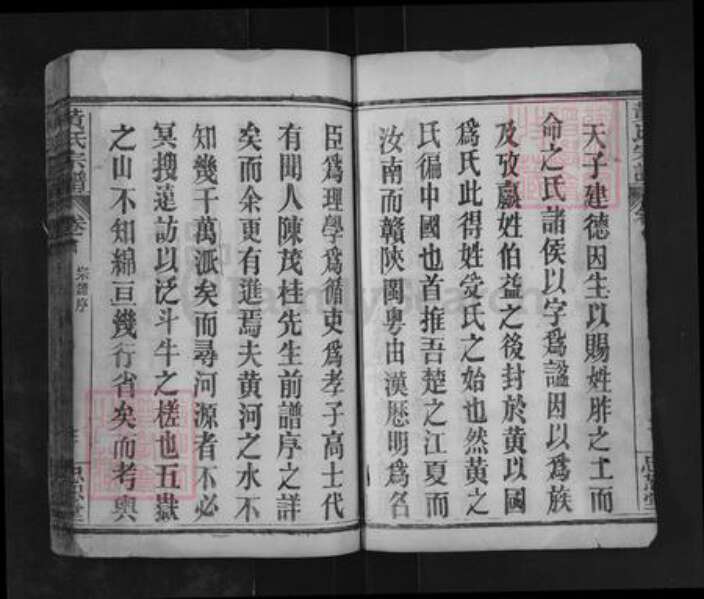 天子建德因生以賜姓胙之土而
命之氏諸侯以字為諡因以為族
及攷嬴姓伯益之後封於黄以國
為氏此得姓受氏之始也然黄之
氏徧中國也首推吾楚之江夏而
汝南而贛陝閩粵由漢歷明為名
臣為理學為循吏為孝子高士代
有聞人陳茂桂先生前譜序之詳
矣而余更有進焉夫黄河之水不
知幾千萬派矣而尋河源者不必
冥搜遠訪以泛斗牛之槎也五嶽
之山不知綿亘幾行省矣而考輿
黄氏宗譜
卷首
宗譜序